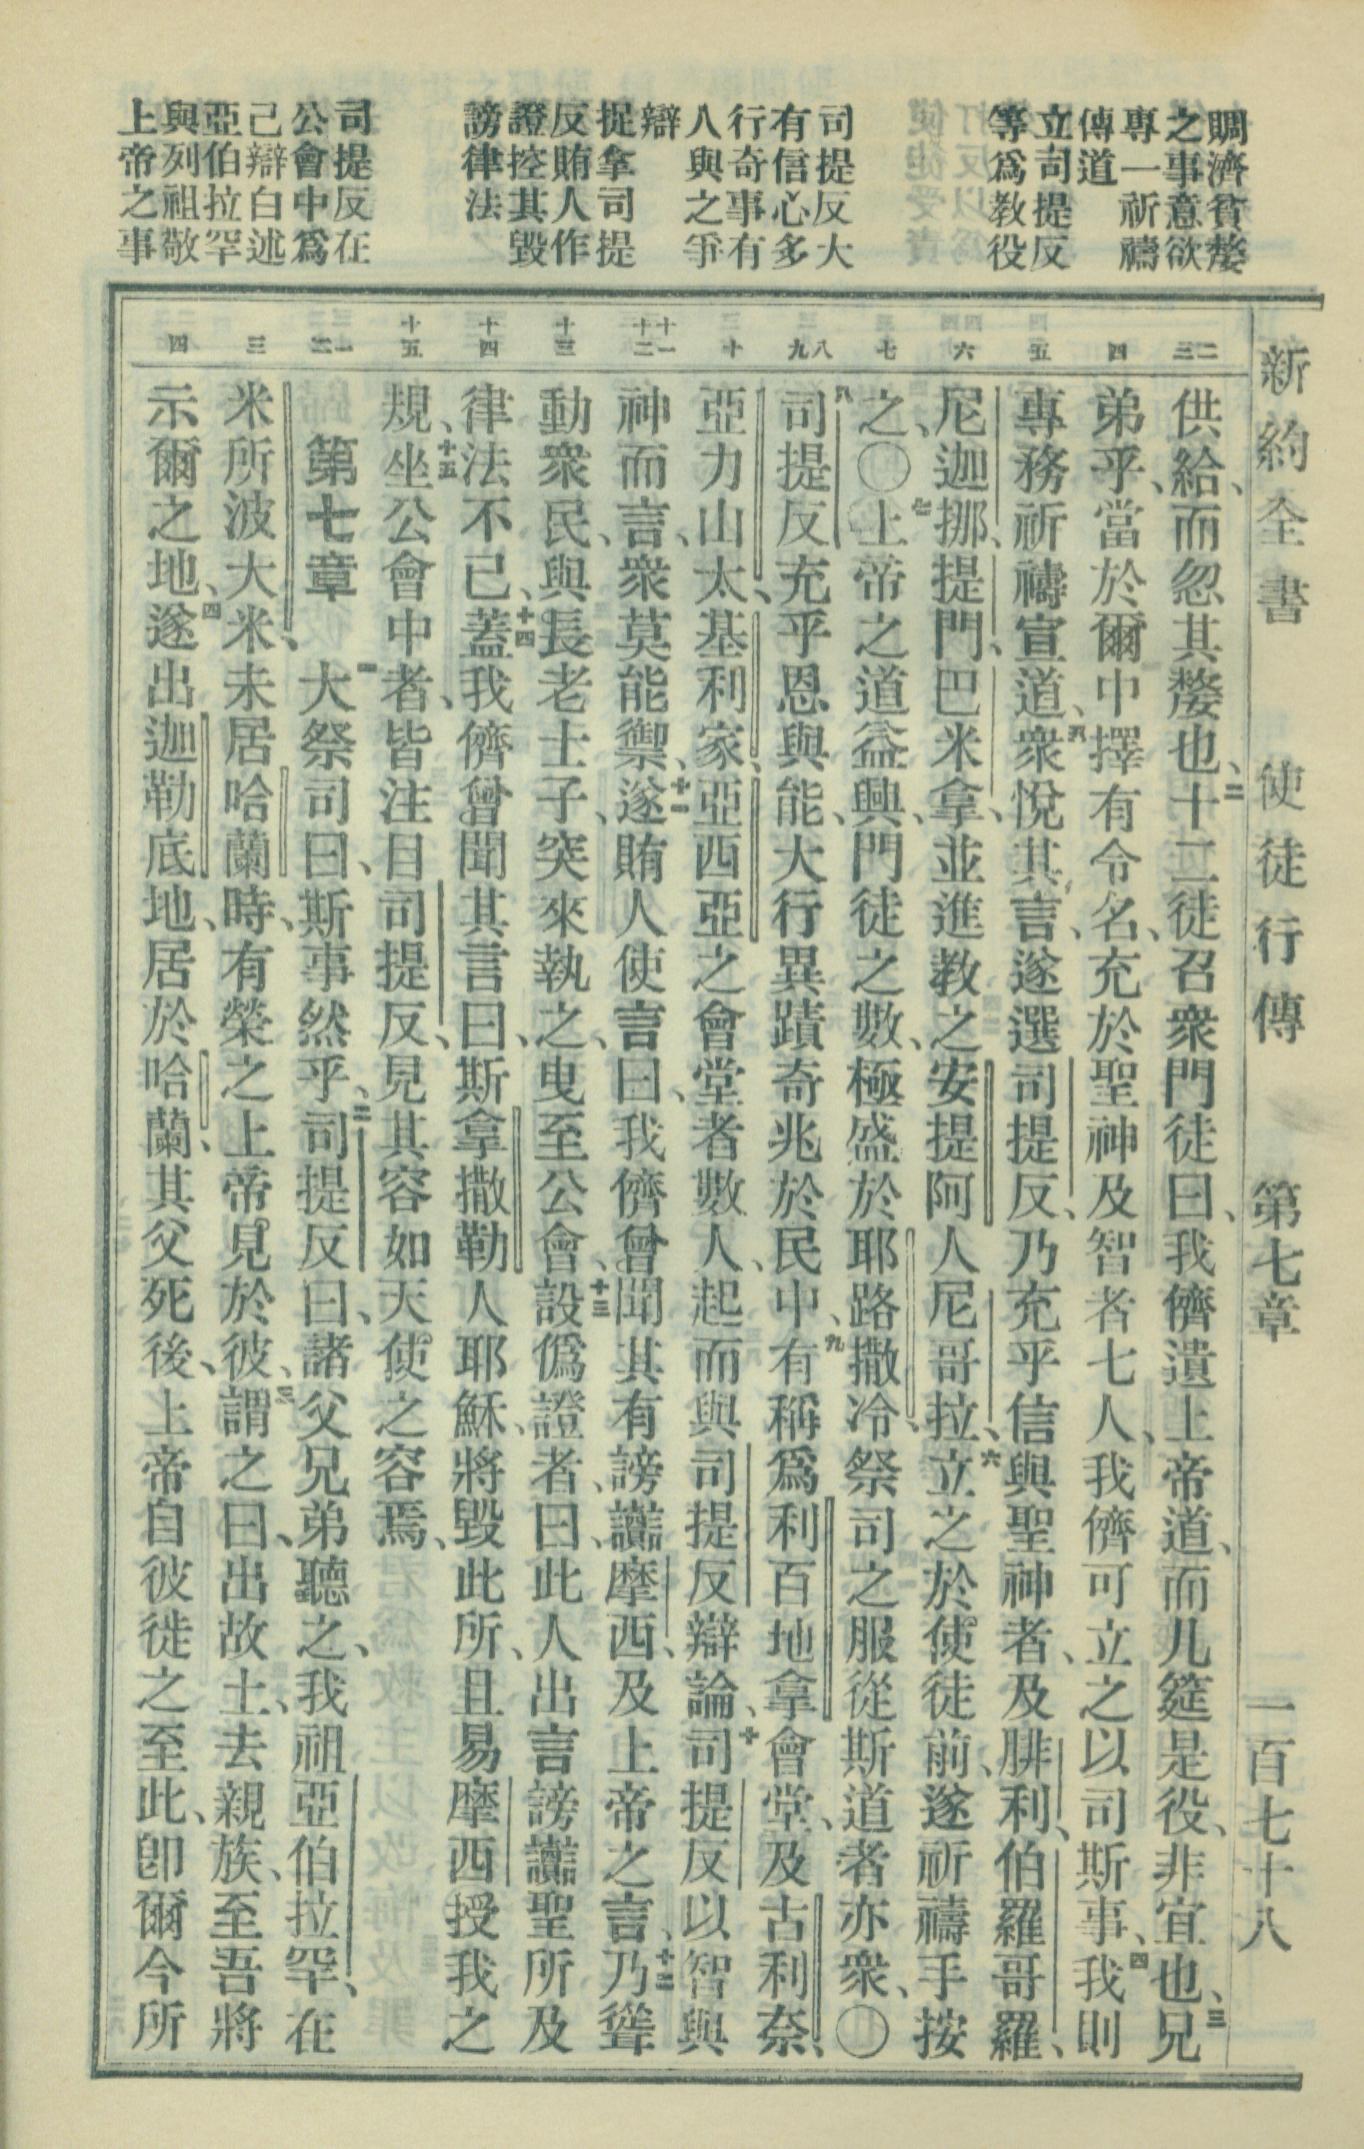 賙濟貧嫠
之事意欲
專一祈禱
傳道
立司提反
等爲教役
司提反大
有信心多
行奇事有
人與之爭
辯
捉拿司提
反賄人作
證控其毀
謗律法
司提反在
公會中爲
己辯白述
亞伯拉罕
與列祖敬
上帝之事
新約全書 使徒行傳 第七章 一百七十八
二三
四
五
六
七
八九
十
十一十二
十三
十四
十五
一二
三
四
供給、而忽其嫠也、二十二徒召衆門徒曰、我儕遺上帝道、而几筵是役、非宜也、三兄
弟乎、當於爾中擇有令名、充於聖神及智者七人、我儕可立之以司斯事、四我則
專務祈禱宣道、五衆悅其言、遂選司提反、乃充乎信與聖神者、及腓利、伯羅哥羅、
尼迦挪、提門、巴米拿、並進教之安提阿人尼哥拉、六立之於使徒前、遂祈禱手按
之、〇七上帝之道益興、門徒之數、極盛於耶路撒冷、祭司之服從斯道者亦衆、〇
八司提反充乎恩與能、大行異蹟奇兆於民中、九有稱爲利百地拿會堂、及古利奈、
亞力山太、基利家、亞西亞之會堂者數人、起而與司提反辯論、十司提反以智與
神而言、衆莫能禦、十一遂賄人使言曰、我儕曾聞其有謗讟摩西、及上帝之言、十二乃聳
動衆民、與長老士子、突來執之、曳至公會、十三設僞證者、曰、此人出言謗讟聖所及
律法不已、十四蓋我儕曾聞其言曰、斯拿撒勒人耶穌、將毀此所、且易摩西授我之
規、十五坐公會中者、皆注目司提反、見其容如天使之容焉、
第七章 一大祭司曰、斯事然乎、二司提反曰、諸父兄弟聽之、我祖亞伯拉罕、在
米所波大米、未居哈蘭時、有榮之上帝見於彼、三謂之曰、出故土、去親族、至吾將
示爾之地、四遂出迦勒底地、居於哈蘭、其父死後、上帝自彼徙之至此、卽爾今所